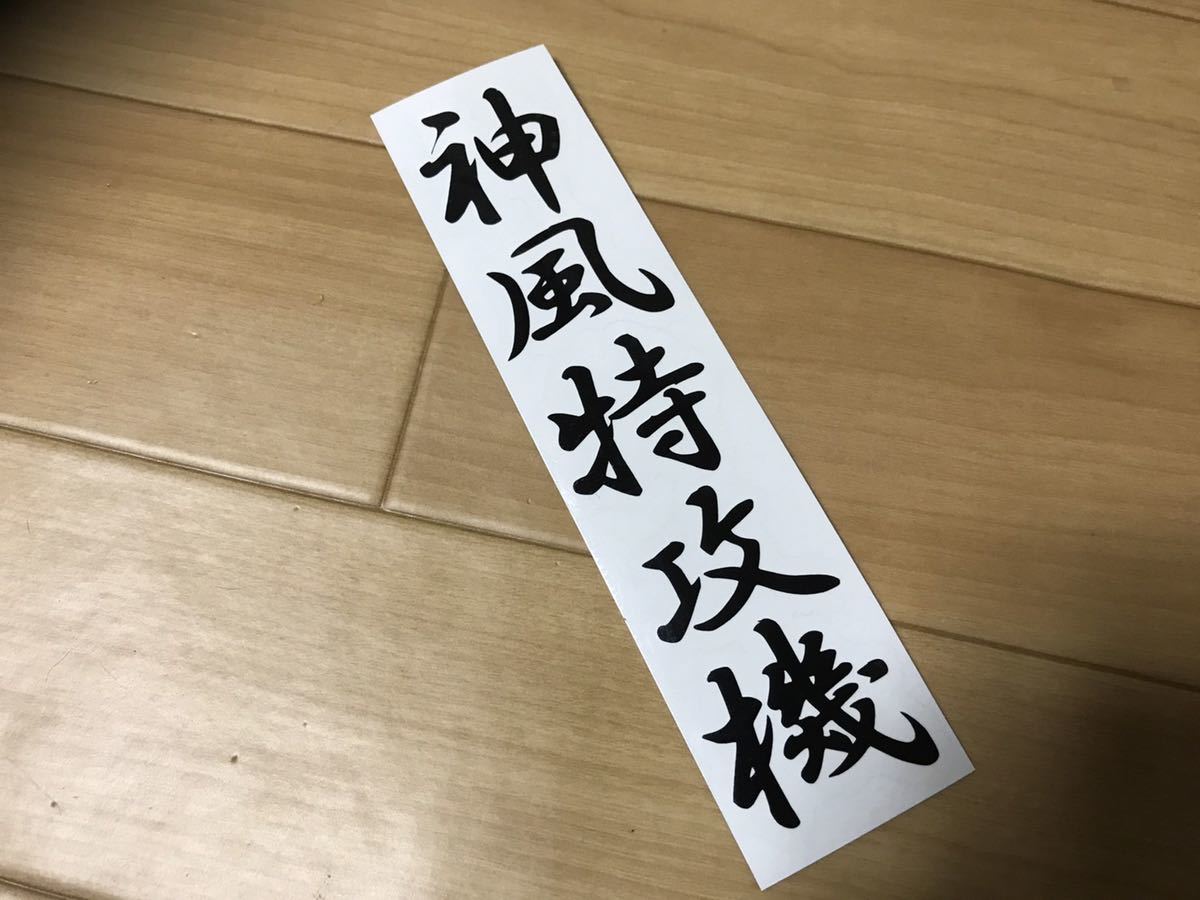 神風特攻機